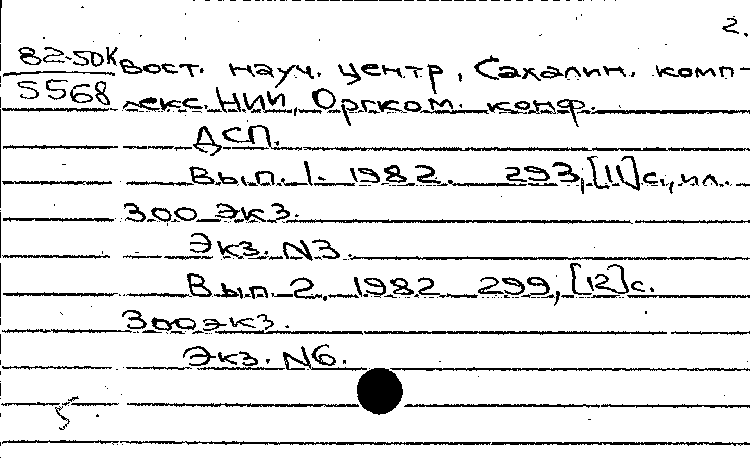 2.
82-50К Вост. науч. центр, Сахалин. комп-
5568 лекс. НИИ, Оргком. конф.
ДСП.
Вып. 1. 1982. 293, [11] с., ил.
300 экз.
Экз. N3.
Вып. 2. 1982 299, [12] с.
300 экз.
Экз. N6.